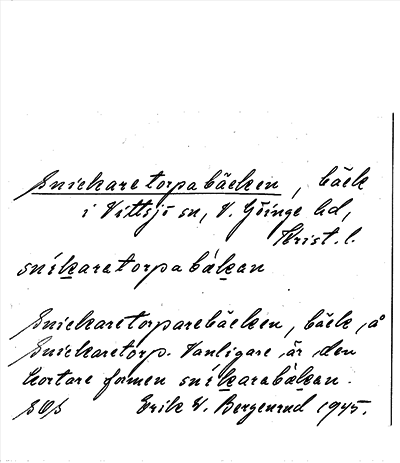 Snickaretorpabäcken, bäck
i Vittsjö sn, V. Göinge hd,
Krist. l.
sníkaretorpabàkan
Snickaretorparebäcken, bäck, å
Snickaretorp. Vanligare är den
kortare formen sníkarabàkan.
SOs Erik W. Bergenrud 1945.